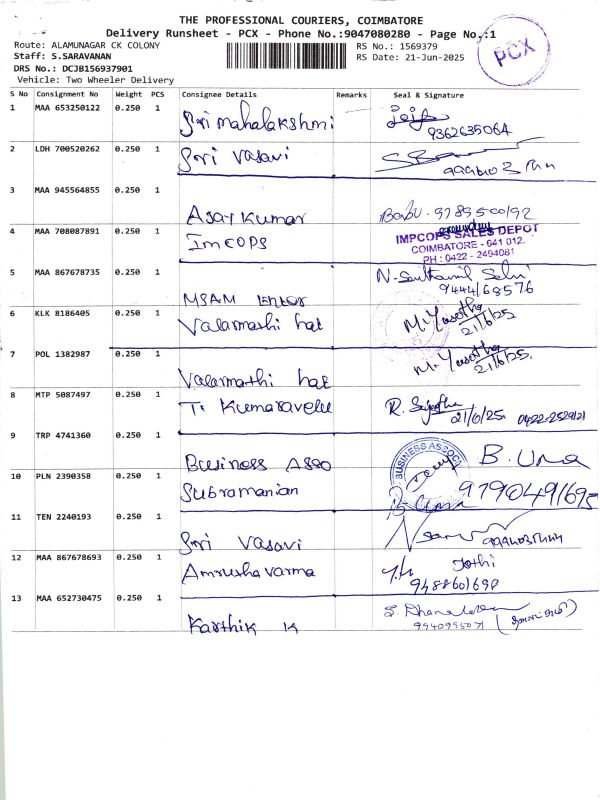 THE PROFESSIONAL COURIERS, COIMBATORE
Delivery Runsheet - PCX - Phone No.:9047080280 - Page No.:1
Route: ALAMUNAGAR CK COLONY
Staff: S.SARAVANAN
DRS No.: DCJB156937901
Vehicle: Two Wheeler Delivery
RS No.: 1569379
RS Date: 21-Jun-2025
PCX
S No Consignment No Weight PCS Consignee Details Remarks Seal & Signature
1 MAA 653250122 0.250 1 Sri mahalakshmi
9362635064
2 LDH 700520262 0.250 1 Sri Vasavi
3 MAA 945564855 0.250 1 Ajay Kumar Babu - 9789500192
4 MAA 708087891 0.250 1 Imcops
IMPCOPS SALES DEPOT
COIMBATORE - 641 012.
PH : 0422 - 2494081
5 MAA 867678735 0.250 1 MSAM N. Senthamil Selvi
9444168576
6 KLK 8186405 0.250 1 Valarmathi hat M. Yasotha
21/6/25
7 POL 1382987 0.250 1 Valarmathi hat M. Yasotha
21/6/25.
8 MTP 5087497 0.250 1 T. Kumaravelu R. Sujatha
21/6/25 0422-2529121
9 TRP 4741360 0.250 1 Business Asso B. Uma
BUSINESS ASSOC
10 PLN 2390358 0.250 1 Subramanian 9790491695
11 TEN 2240193 0.250 1 Sri Vasavi
12 MAA 867678693 0.250 1 Amrusha varma Jothi
9488601698
13 MAA 652730475 0.250 1 Karthik K
9940995071